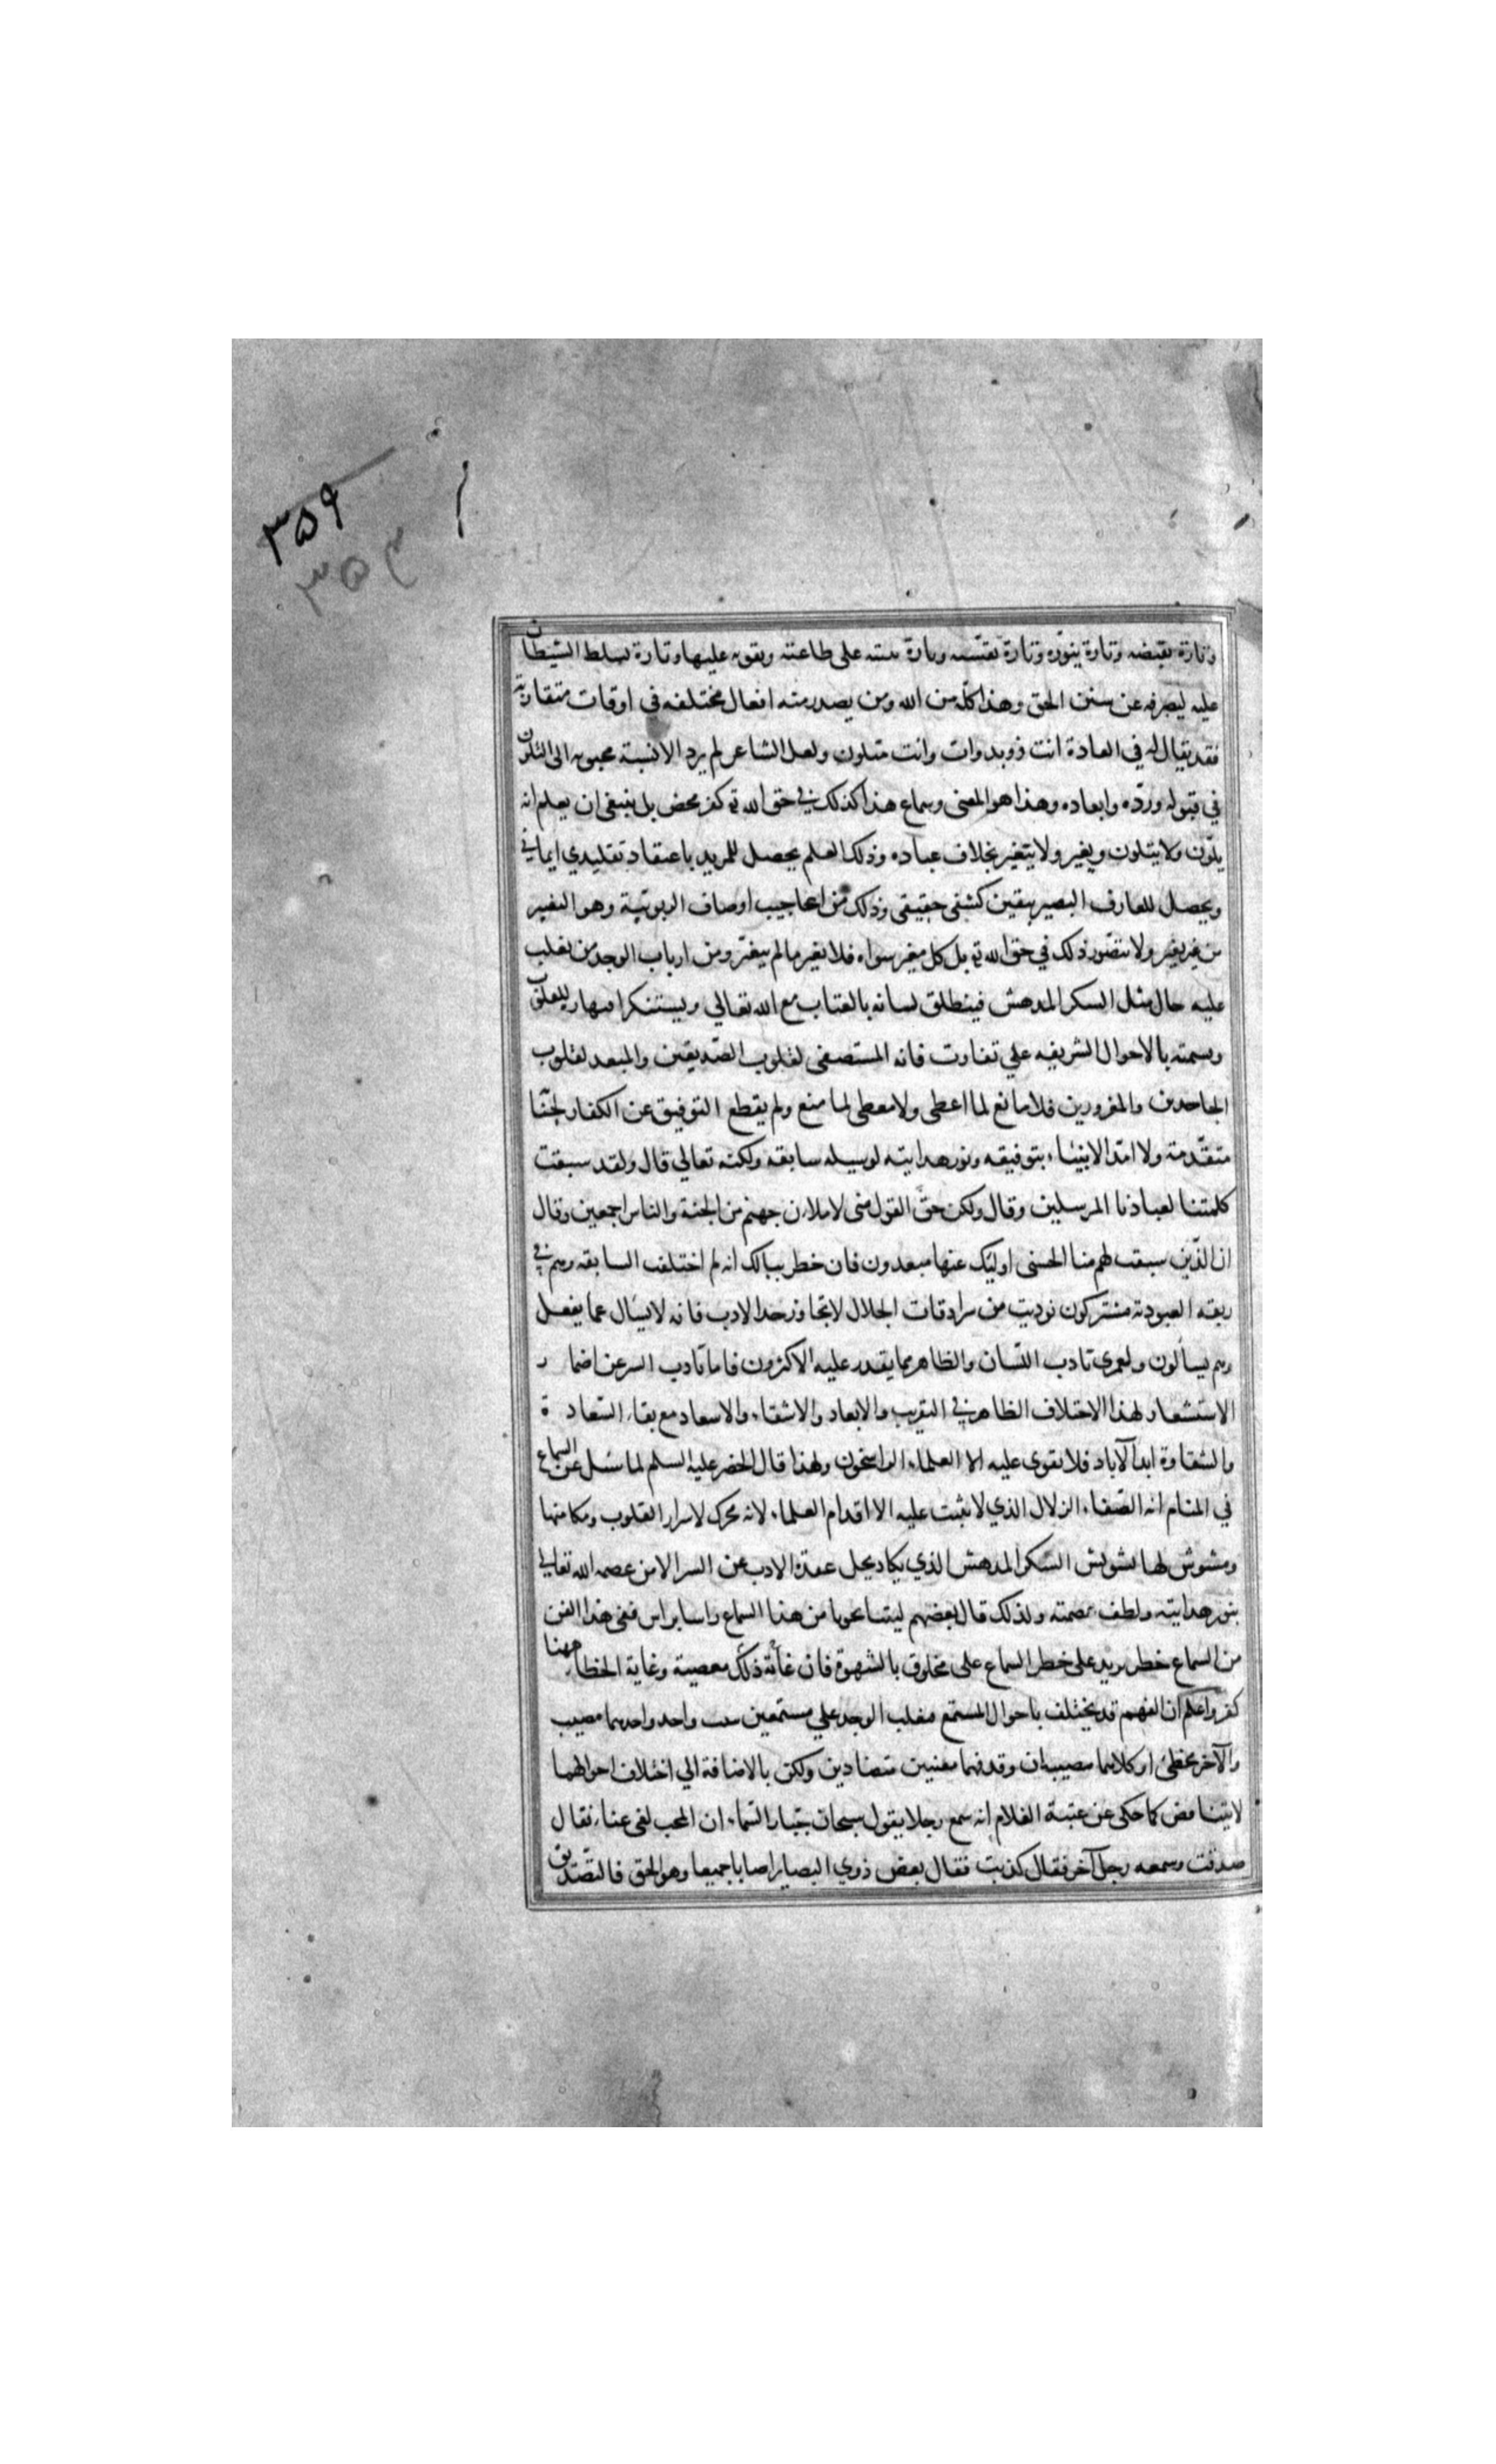 ٣٥٩
٣٥٣
وتارة يقبضه وتارة ينوّره وتارة يقسّيه وتارة يثبته على طاعته ويقويه عليها وتارة يسلط الشيطان
عليه ليصرفه عن سنن الحق وهذا كلّه من الله ومن يصدر منه افعال مختلفه في اوقات متقاربة
فقد يقال له في العادة انت ذو بدوات وانت متلون ولعل الشاعر لم يرد الا نسبة محبوبه الى التلون
في قبوله وردّه وابعاده وهذا هو المعنى وسماع هذا كذلك في حق الله تع كفر محض بل ينبغى ان يعلم انه
يلوّن ولا يتلون ويغير ولا يتغير بخلاف عباده وذلك العلم يحصل للمريد باعتقاد تقليدي ايماني
ويحصل للعارف البصير بيقين كشفى حقيقى وذلك من اعاجيب اوصاف الربوبيّة وهو المغير
من غير تغير ولا يتصّور ذلك في حق الله تع بل كل مغير سواه فلا يغير ما لم يتغيّر ومن ارباب الوجد من يغلب
عليه حال مثل السكر المدهش فينطلق لسانه بالعتاب مع الله تعالي ويستنكر اقتهاره للقلوب
وقسمته بالاحوال الشريفه علي تفاوت فانه المستصفى لقلوب الصّديقين والمبعد لقلوب
الجاحدين والمغرورين فلا مانع لما اعطى ولا معطى لما منع ولم يقطع التوفيق عن الكفار لجناية
متقدّمة ولا امدّ الانبياء بتوفيقه ونور هدايته لوسيله سابقه ولكنه تعالي قال ولقد سبقت
كلمتنا لعبادنا المرسلين وقال ولكن حقّ القول منى لاملان جهنم من الجنة والناس اجمعين وقال
ان الذّين سبقت لهم منا الحسنى اولئك عنها مبعدون فان خطر ببالك انه لم اختلفت السابقه وهم في
ربقه العبودية مشتركون نوديت من سرادقات الجلال لا تجاوز حد الادب فانه لا يسأل عما يفعل
وهم يسألون ولعمري تادب اللسان والظاهر مما يقدر عليه الاكثرون فاما تأدب السر عن اضمار
الاستشعار لهذا الاختلاف الظاهر في التقريب والابعاد والاشقاء والاسعاد مع بقاء السّعادة
والشقاوة ابد الآباد فلا يقوى عليه الا العلماء الراسخون ولهذا قال الخضر عليه السلم لما سئل عن السماع
في المنام انه الصّفاء الزلال الذي لا تثبت عليه الا اقدام العلماء لانه محرك لاسرار القلوب ومكامنها
ومشوش لها تشويش السّكر المدهش الذي يكاد يحل عقدة الادب عن السر الا من عصمه الله تعالي
بنور هدايته ولطف عصمته ولذلك قال بعضهم ليتنا نجونا من هذا السماع راسا براس ففى هذا الفن
من السماع خطر يزيد على خطر السماع على مخلوق بالشهوة فان غاية ذلك معصية وغاية الخطاء ههنا
كفر واعلم ان الفهم قد يختلف باحوال المستمع فيغلب الوجد علي مستمعين ببيت واحد واحدهما مصيب
والآخر مخطئ او كلاهما مصيبان وقد فهما معنيين متضادين ولكن بالاضافة الي اختلاف احوالهما
لا يتناقض كما حكى عن عتبة الغلام انه سمع رجلا يقول سبحان جبّار السّماء ان المحب لفى عناء فقال
صدقت وسمعه رجل آخر فقال كذبت فقال بعض ذوي البصاير اصابا جميعا وهو الحق فالتصديق